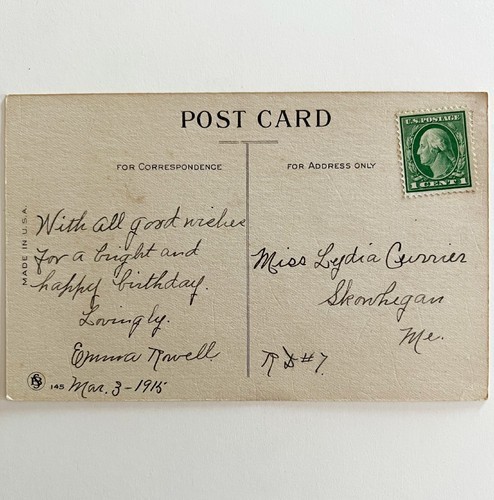 POST CARD
U.S. POSTAGE
1 CENT 1
FOR CORRESPONDENCE
FOR ADDRESS ONLY
MADE IN U.S.A.
With all good wishes
for a bright and
happy birthday.
Lovingly.
Emma Rowell
145 Mar. 3-1915
Miss Lydia Currier
Skowhegan
Me.
RD#7.